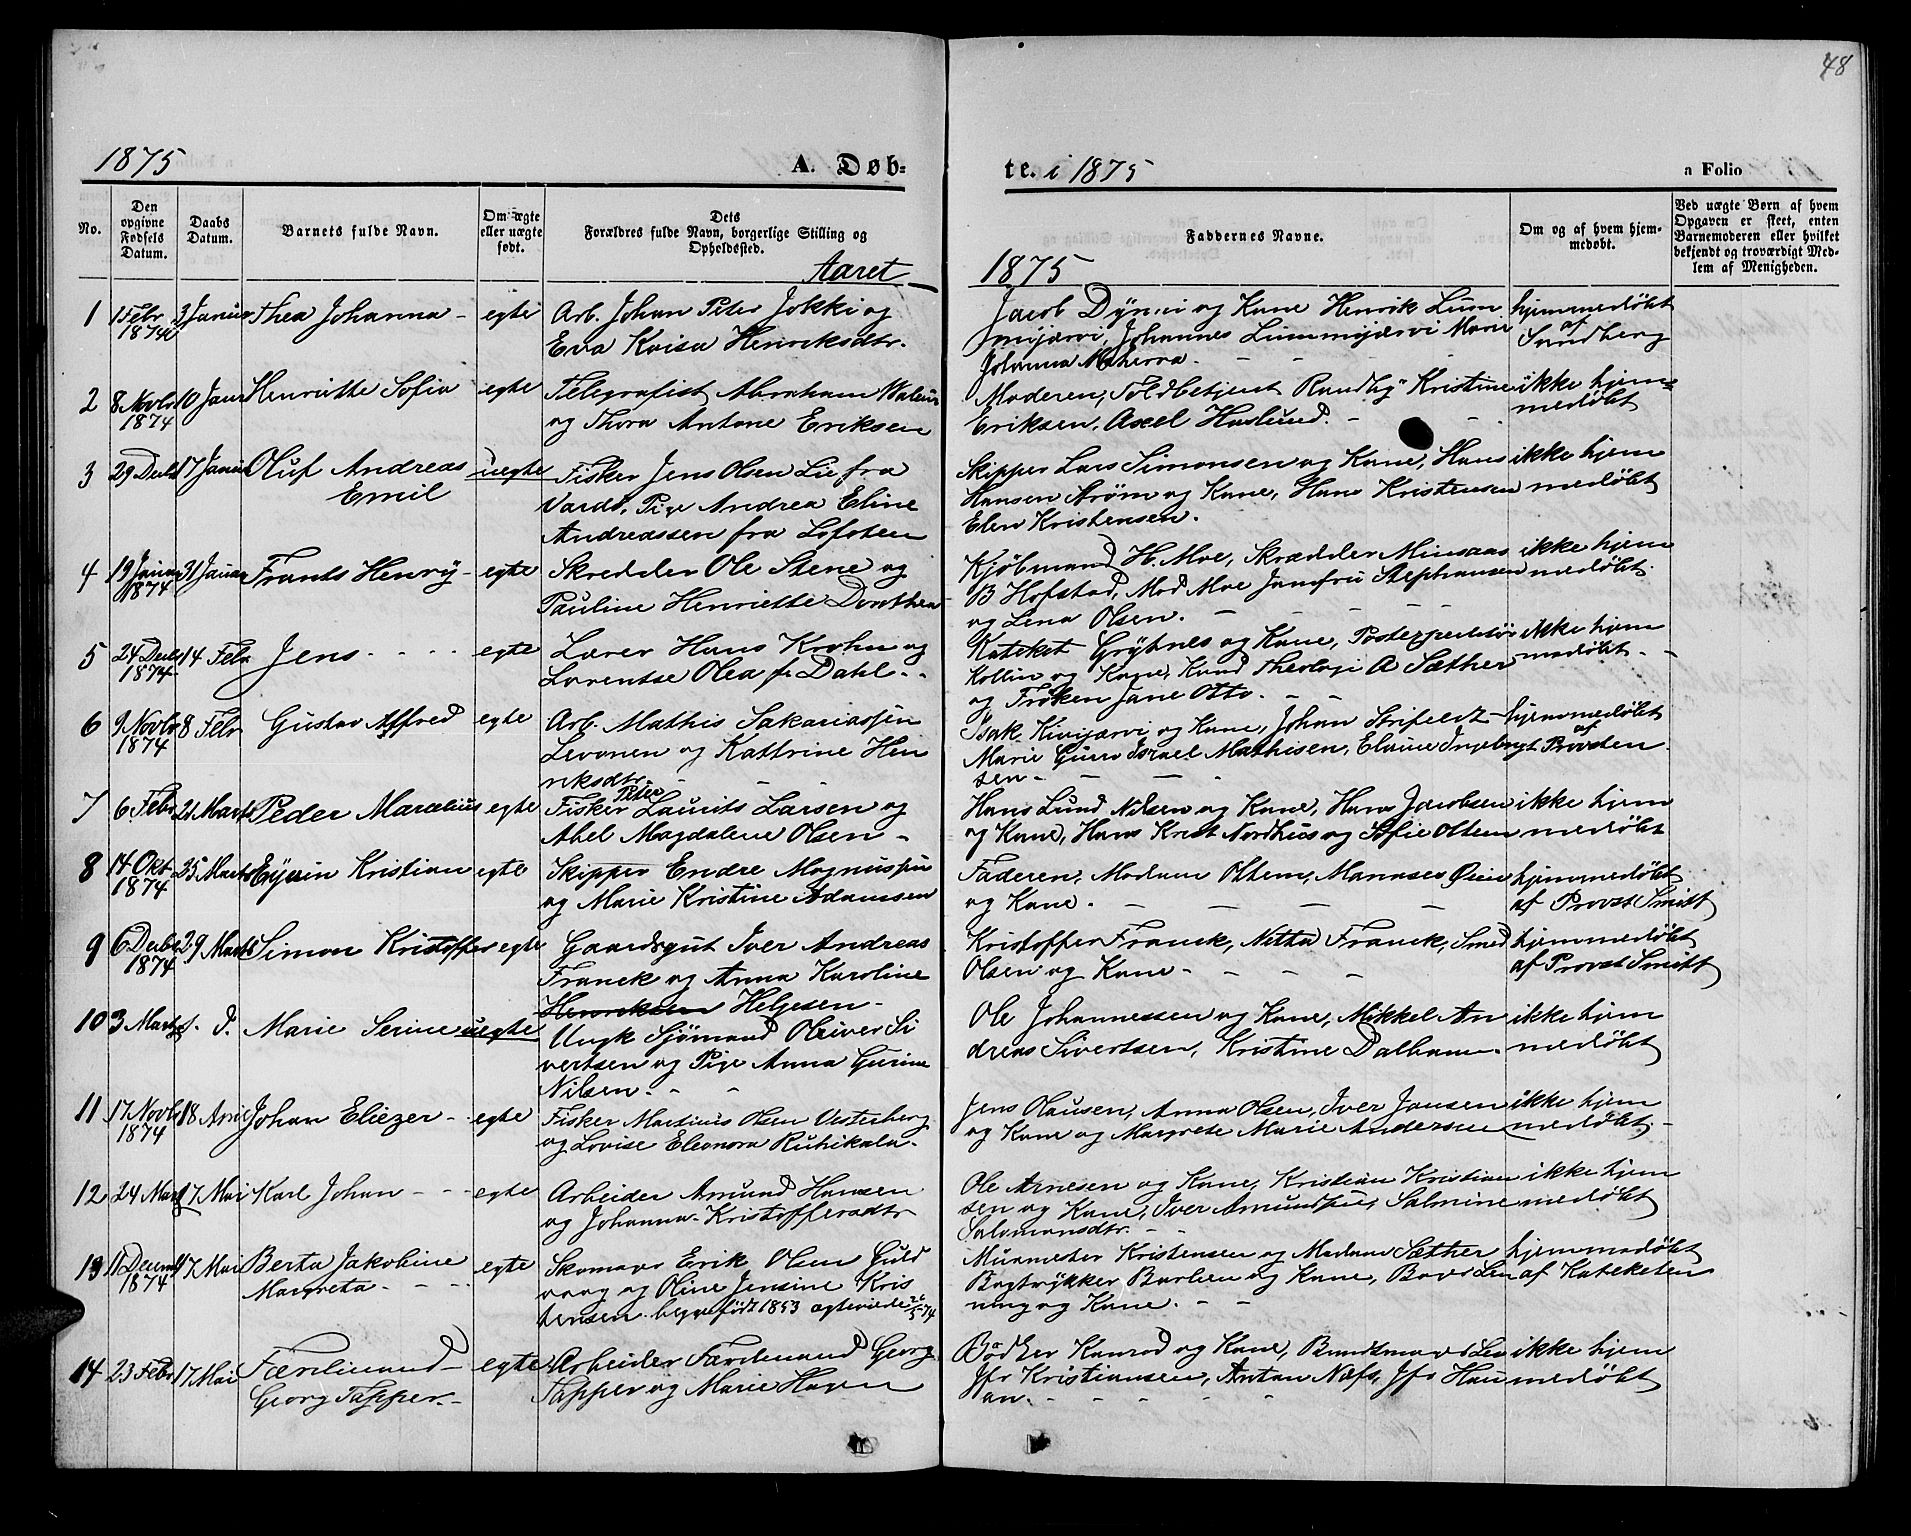 48
1875
A. Døb-
te. i 1875
a Folio
No.
Den opgivne Fødsels Datum.
Daabs Datum.
Barnets fulde Navn.
Om ægte eller uægte født.
Dets Forældres fulde Navn, borgerlige Stilling og Opholdssted.
Faddernes Navne.
Om og af hvem hjem-
medøbt.
Ved uægte Børn af hvem
Opgaven er skeet, enten
Barnemoderen eller hvilket
bekjendt og troværdigt Med-
lem af Menigheden.
Aaret
1875
1 1 Febr 3 Januar Thea Johanna - egte Arb. Johan Peter Jokki og
1874 Eva Kaisa Henriksdtr.
Jacob og Kane Henrik Lum
mijærvi, Johannes Lummijærvi Marie
Johanna
hjemmedøbt
af
Sandberg
2 8 Novbr 10 Janr Henriette Sofia egte Telegrafist Abraham
1874 og Thora Antone Eriksen
Moderen, Toldbetjent Randby Kristine
Eriksen, Axel Haslund. -
ikke hjem=
medøbt
3 29 Decbr 17 Januar Oluf Andreas uegte Fisker Jens Olsen Lie fra
Emil Vardø, Pige Andrea Eline
Andreassen fra Lofoten
Skipper Lars Simonsen og Kane, Hans
Hansen Strøm og Kane, Hans Kristensen
Elen Kristensen.
ikke hjem
medøbt
4 19 Januar 31 Januar Frants Henrij - egte Skredder Ole Stene og
1874 Pauline Henriette Dorthea
Kjøbmand H. Moe, Skrædder Minsaas
B Hofstad, Mad Moe Jomfru Stephansen
og Lena Olsen. -
ikke hjem
medøbt.
5 24 Decbr 14 Febr Jens - - - - egte Lærer Hans Krohn og
1874 Lorentse Olea f. Dahl - -
Kateket Grytnes og Kane, Postexpeditør
Kollin og Kane, Kand Theologi A Sæther
og Frøken Jane Otto. - -
ikke hjem
medøbt. -
6 9 Novbr 8 Febr Gustav Alfred egte Arb. Mathis Sakariassen
1874 Levonen og Kathrine Hen
riksdtr. -
Isak Kivijærvi og Kane, Johan Strifeldt
Marie Guro Israel Mathisen, Elvine Ingebrgt
sen - - -
hjemmedøbt
af
Provsten
7 6 Febr 21 Marts Peder Marcelius egte Fisker Peter Laurits Larsen og
Abel Magdalene Olsen -
Hans Lund Nilsen og Kane, Hans Jacobsen
og Kane, Hans Krist Nordhus og Sofie Oltem
ikke hjem
medøbt
8 14 Okt 25 Marts Kristian egte Skipper Endre Magnussen
1874 og Marie Kristine Adamsen
Faderen, Madam Oltem, Manases Øien
og Kane. - - - -
hjemmedøbt
af Provst Smitt
9 6 Decbr 29 Marts Simon Kristoffer egte Gaardsgut Iver Andreas
1874 Franck og Anna Karoline
Henriksen Helgesen -
Kristoffer Franck, Netta Franck, Smed
Olsen og Kane - - -
hjemmedøbt
af Provst Smitt
10 3 Marts s. D. Marie Serine uegte Ungk Sjømand Oliver Si
vertsen og Pige Anna Gurine
Nilsen. - -
Ole Johannessen og Kane, Mikkel An
dreas Sivertsen, Kristine Dalham.
ikke hjem
medøbt
11 17 Novbr 18 April Johan Eliezer - egte Fisker Martinus Olsen Vesterberg
1874 og Lovise Eleonora Ruhikala -
Jens Olausen, Anna Olsen, Iver Jansen
og Kane og Margrete Marie Andersen
ikke hjem
medøbt. -
12 24 Marts 17 Mai Karl Johan - - - egte Arbeider Amund Hansen
og Johanna Kristoffersdtr
Ole Arnesen og Kane, Kristian Kristian
sen og Kane, Iver Amundsen, Salmine
Salamonsdtr. -
ikke hjem
medøbt
13 11 Decemb 17 Mai Berta Jakobine egte Skomager Erik Olsen Guld
1874 Margreta - - - vaag og Oline Jensine Kris
tensen. begge født 1853 ægteviede 26/5-74
Murmester Kristensen og Madam Sæther
Bogtrykker Barben og Kane, Baud Len
ning og Kane. - -
hjemmedøbt
af Kateketen
14 23 Febr 17 Mai Færdinand - egte Arbeider Færdinand Georg
Georg Tapper. - Tapper og Marie Havn
Bødker Konrad og Kane, Bundtmager Lev
Jfr Kristiansen, Anton Næss, Jfr Hau
an. - - - -
ikke hjem
medøbt